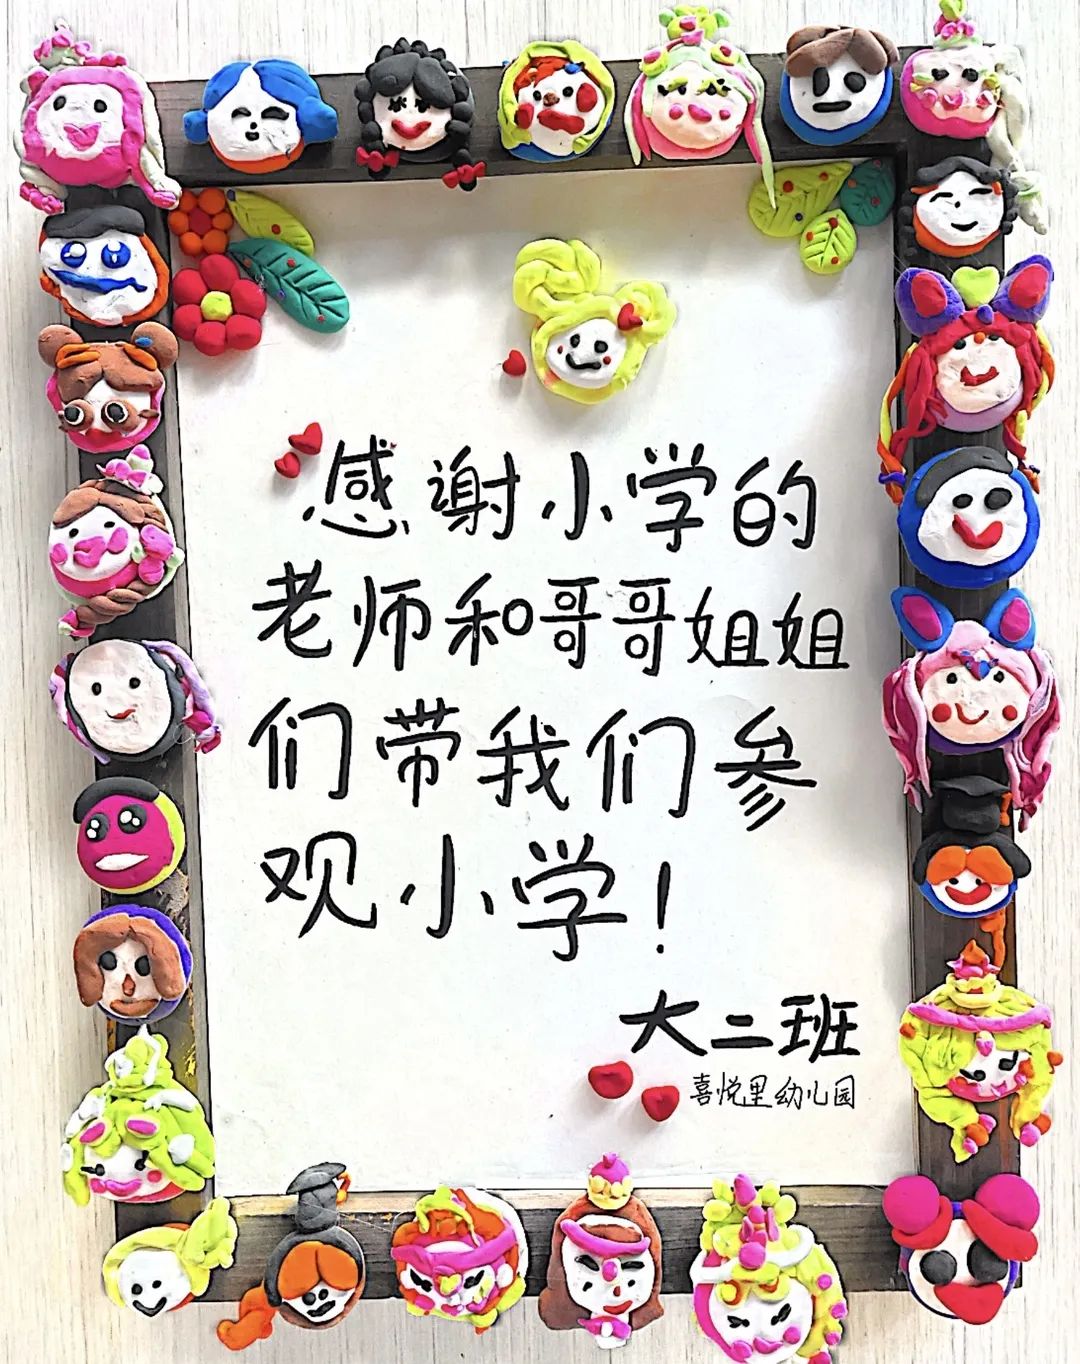 感谢小学的
老师和哥哥姐姐
们带我们参
观小学！
大二班
喜悦里幼儿园